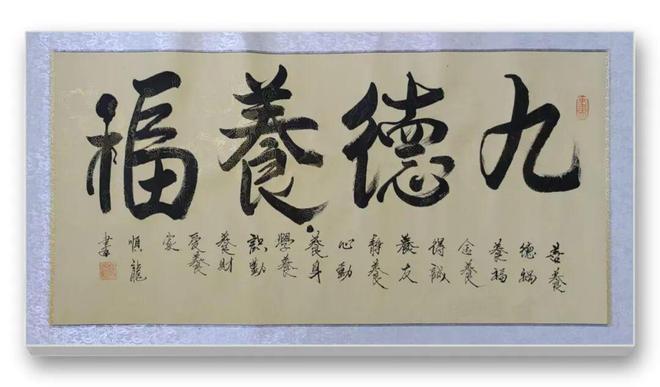 九德養福
善養
德
養福
養
誠
養友
靜養
心動
養身
學養
識勤
養財
愛養
家
順龍
書